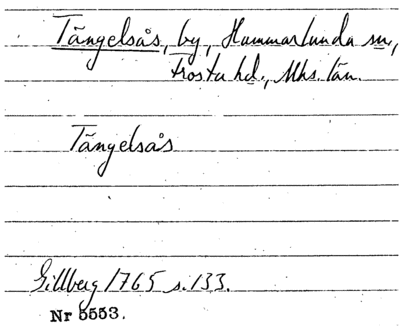 Tängelsås, by, Hammarlunda sn,
Frosta hd., Mhs. län.
Tängelsås
Gillberg 1765 s. 133.
Nr 5553.